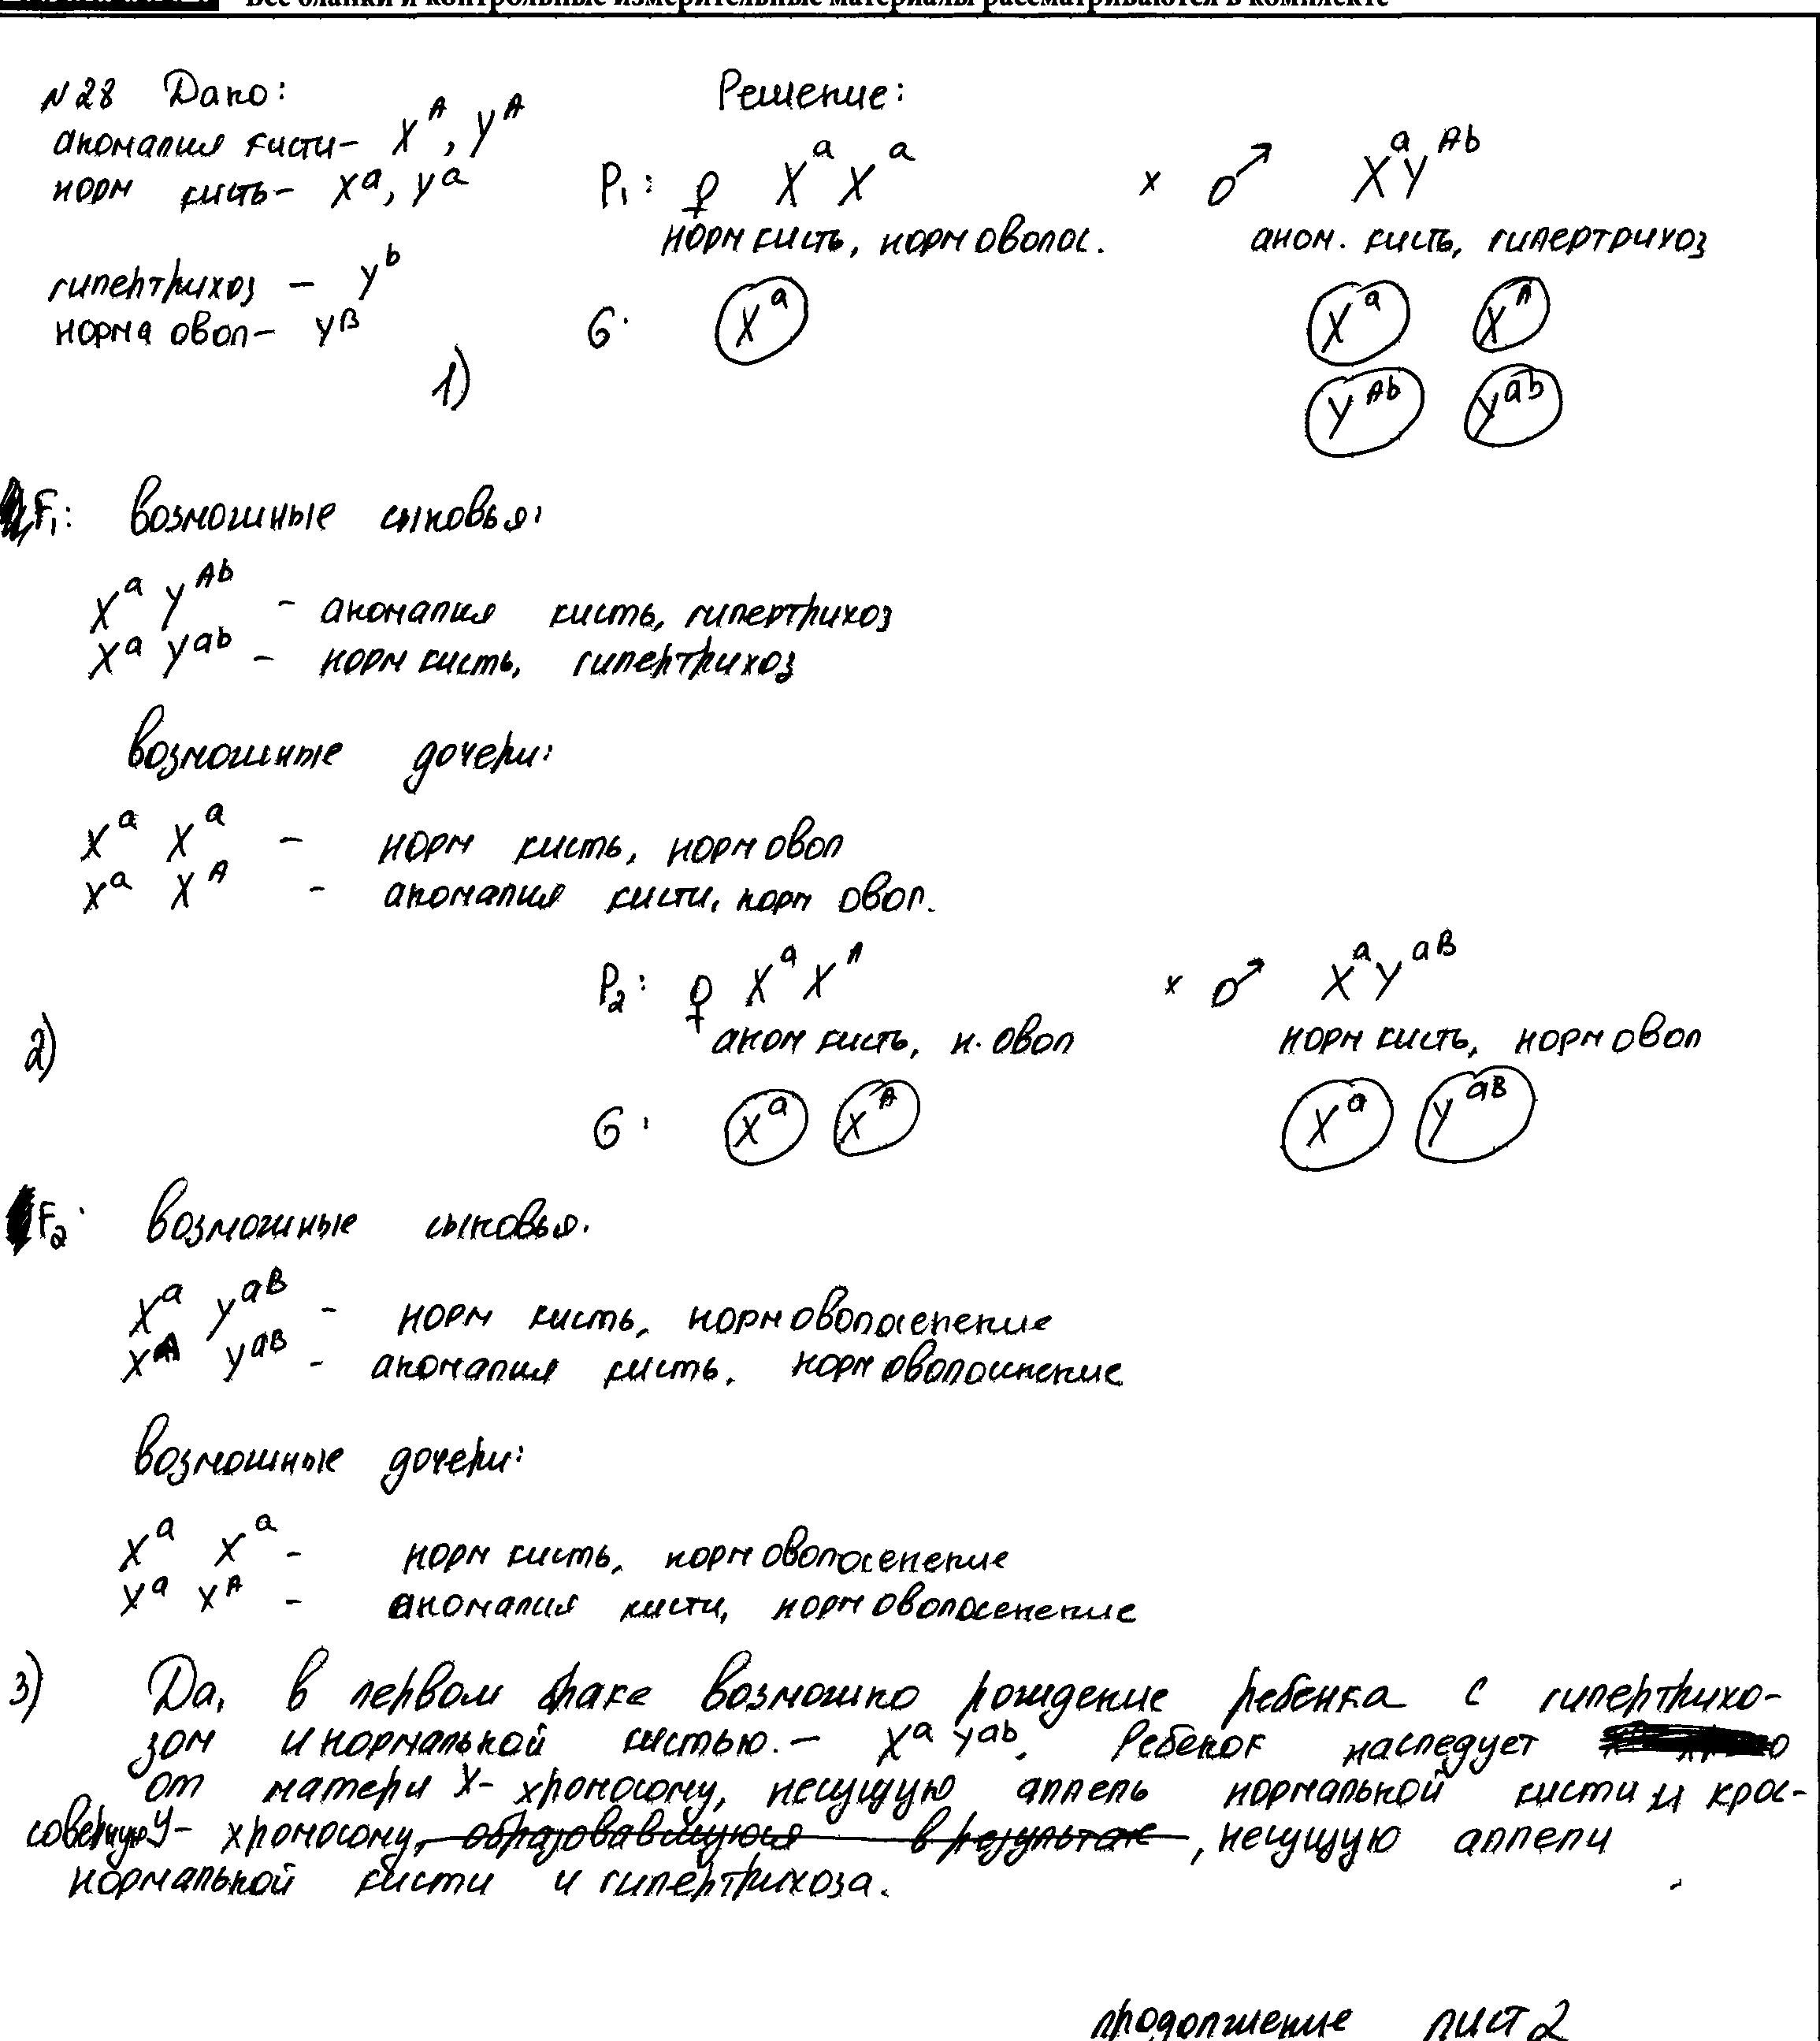 Все бланки и контрольные измерительные материалы рассматриваются в комплекте
№28 Дано: Решение:
аномалия кисти - X^A, Y^A
норм кисть - X^a, Y^a
P₁: ♀ X^a X^a × ♂ X^a Y^Ab
норм кисть, норм оволос. аном. кисть, гипертрихоз
гипертрихоз - Y^b
норма овол - Y^B
G: X^a X^a X^A
1) Y^Ab Y^ab
F₁: возможные сыновья:
X^a Y^Ab - аномалия кисть, гипертрихоз
X^a Y^ab - норм кисть, гипертрихоз
возможные дочери:
X^a X^a - норм кисть, норм овол
X^a X^A - аномалия кисти, норм овол.
P₂: ♀ X^a X^A × ♂ X^a Y^aB
2) аном кисть, н. овол норм кисть, норм овол
G: X^a X^A X^a Y^aB
F₂: возможные сыновья.
X^a Y^aB - норм кисть, норм оволосенение
X^A Y^aB - аномалия кисть, норм оволоснение
возможные дочери:
X^a X^a - норм кисть, норм оволосенение
X^a X^A - аномалия кисти, норм оволосенение
3) Да, в первом браке возможно рождение ребенка с гипертрихо-
зом и нормальной кистью. - X^a Y^ab. Ребенок наследует
от матери X- хромосому, несущую аллель нормальной кисти и крос-
соверную Y- хромосому, образовавшуюся в результате, несущую аллели
нормальной кисти и гипертрихоза.
продолжение лист 2